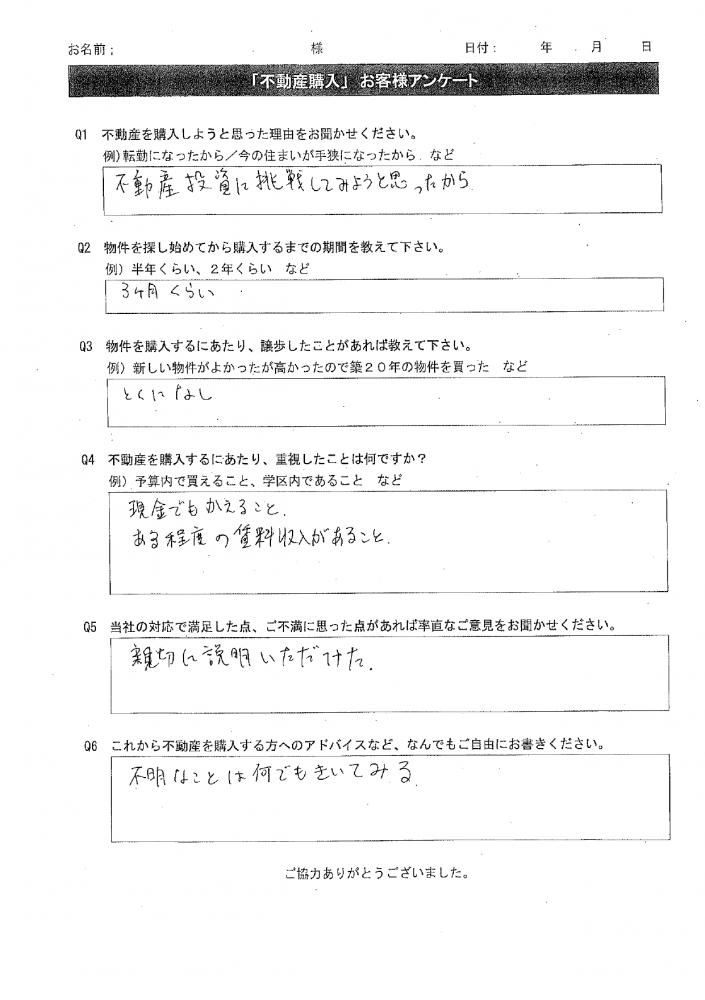 お名前； 様 日付： 年 月 日
「不動産購入」お客様アンケート
Q1 不動産を購入しようと思った理由をお聞かせください。
例）転勤になったから／今の住まいが手狭になったから など
不動産投資に挑戦してみようと思ったから
Q2 物件を探し始めてから購入するまでの期間を教えて下さい。
例）半年くらい、２年くらい など
3ヶ月くらい
Q3 物件を購入するにあたり、譲歩したことがあれば教えて下さい。
例）新しい物件がよかったが高かったので築２０年の物件を買った など
とくになし
Q4 不動産を購入するにあたり、重視したことは何ですか？
例）予算内で買えること、学区内であること など
現金でもかえること.
ある程度の賃料収入があること.
Q5 当社の対応で満足した点、ご不満に思った点があれば率直なご意見をお聞かせください。
親切に説明いただけた.
Q6 これから不動産を購入する方へのアドバイスなど、なんでもご自由にお書きください。
不明なことは何でもきいてみる.
ご協力ありがとうございました。